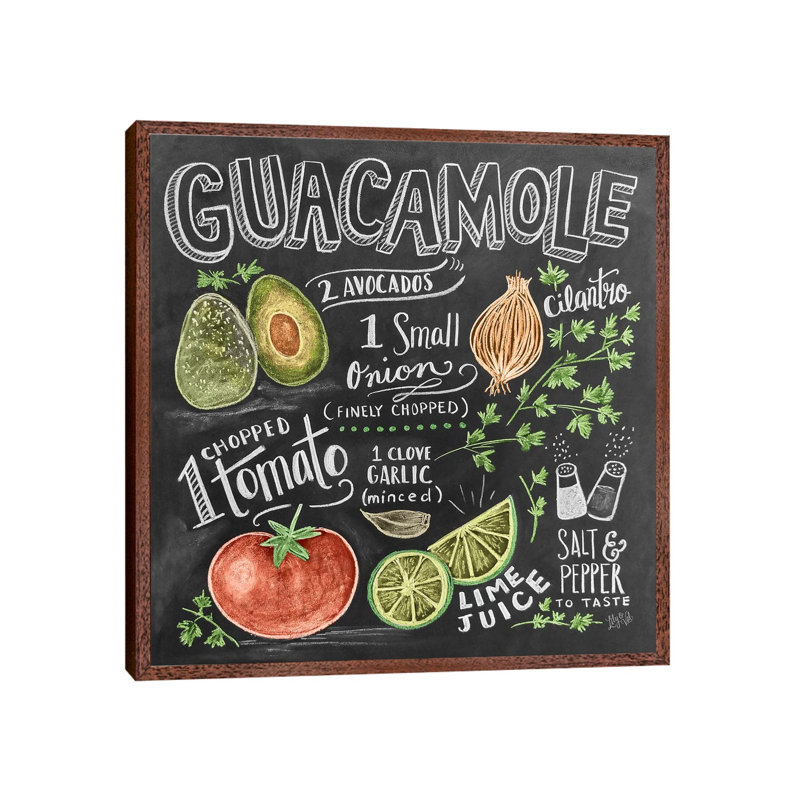 GUACAMOLE
2 AVOCADOS
Cilantro
1 Small
Onion
(FINELY CHOPPED)
1 CHOPPED
tomato
1 CLOVE
GARLIC
(minced)
SALT &
PEPPER
TO TASTE
LIME
JUICE
Lily & Val